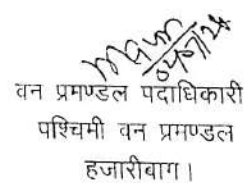 वन प्रमण्डल पदाधिकारी
पश्चिमी वन प्रमण्डल
हजारीबाग।